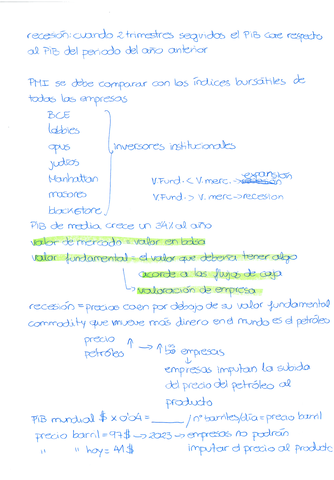 recesión: cuando 2 trimestres seguidos el PiB cae respecto
al PiB del periodo del año anterior
PMI se debe comparar con los índices bursátiles de
todas las empresas
BCE
lobbies
opus
judíos
Manhattan
masones
blackstone
inversores institucionales
V.Fund. < V.merc. → expansión
V.Fund > V.merc → recesion
PiB de media crece un 3'4% al año
valor de mercado = valor en bolsa
valor fundamental = el valor que debería tener algo
acorde a los flujos de caja
valoración de empresa
recesión = precios caen por debajo de su valor fundamental
commodity que mueve más dinero en el mundo es el petróleo
precio
petróleo ↑ → ↑ empresas
empresas imputan la subida
del precio del petróleo al
producto
PiB mundial $ x 0'04 = / nº barriles/día = precio barril
precio barril = 97$ → 2023 → empresas no podrán
" " hoy = 41$ imputar el precio al producto